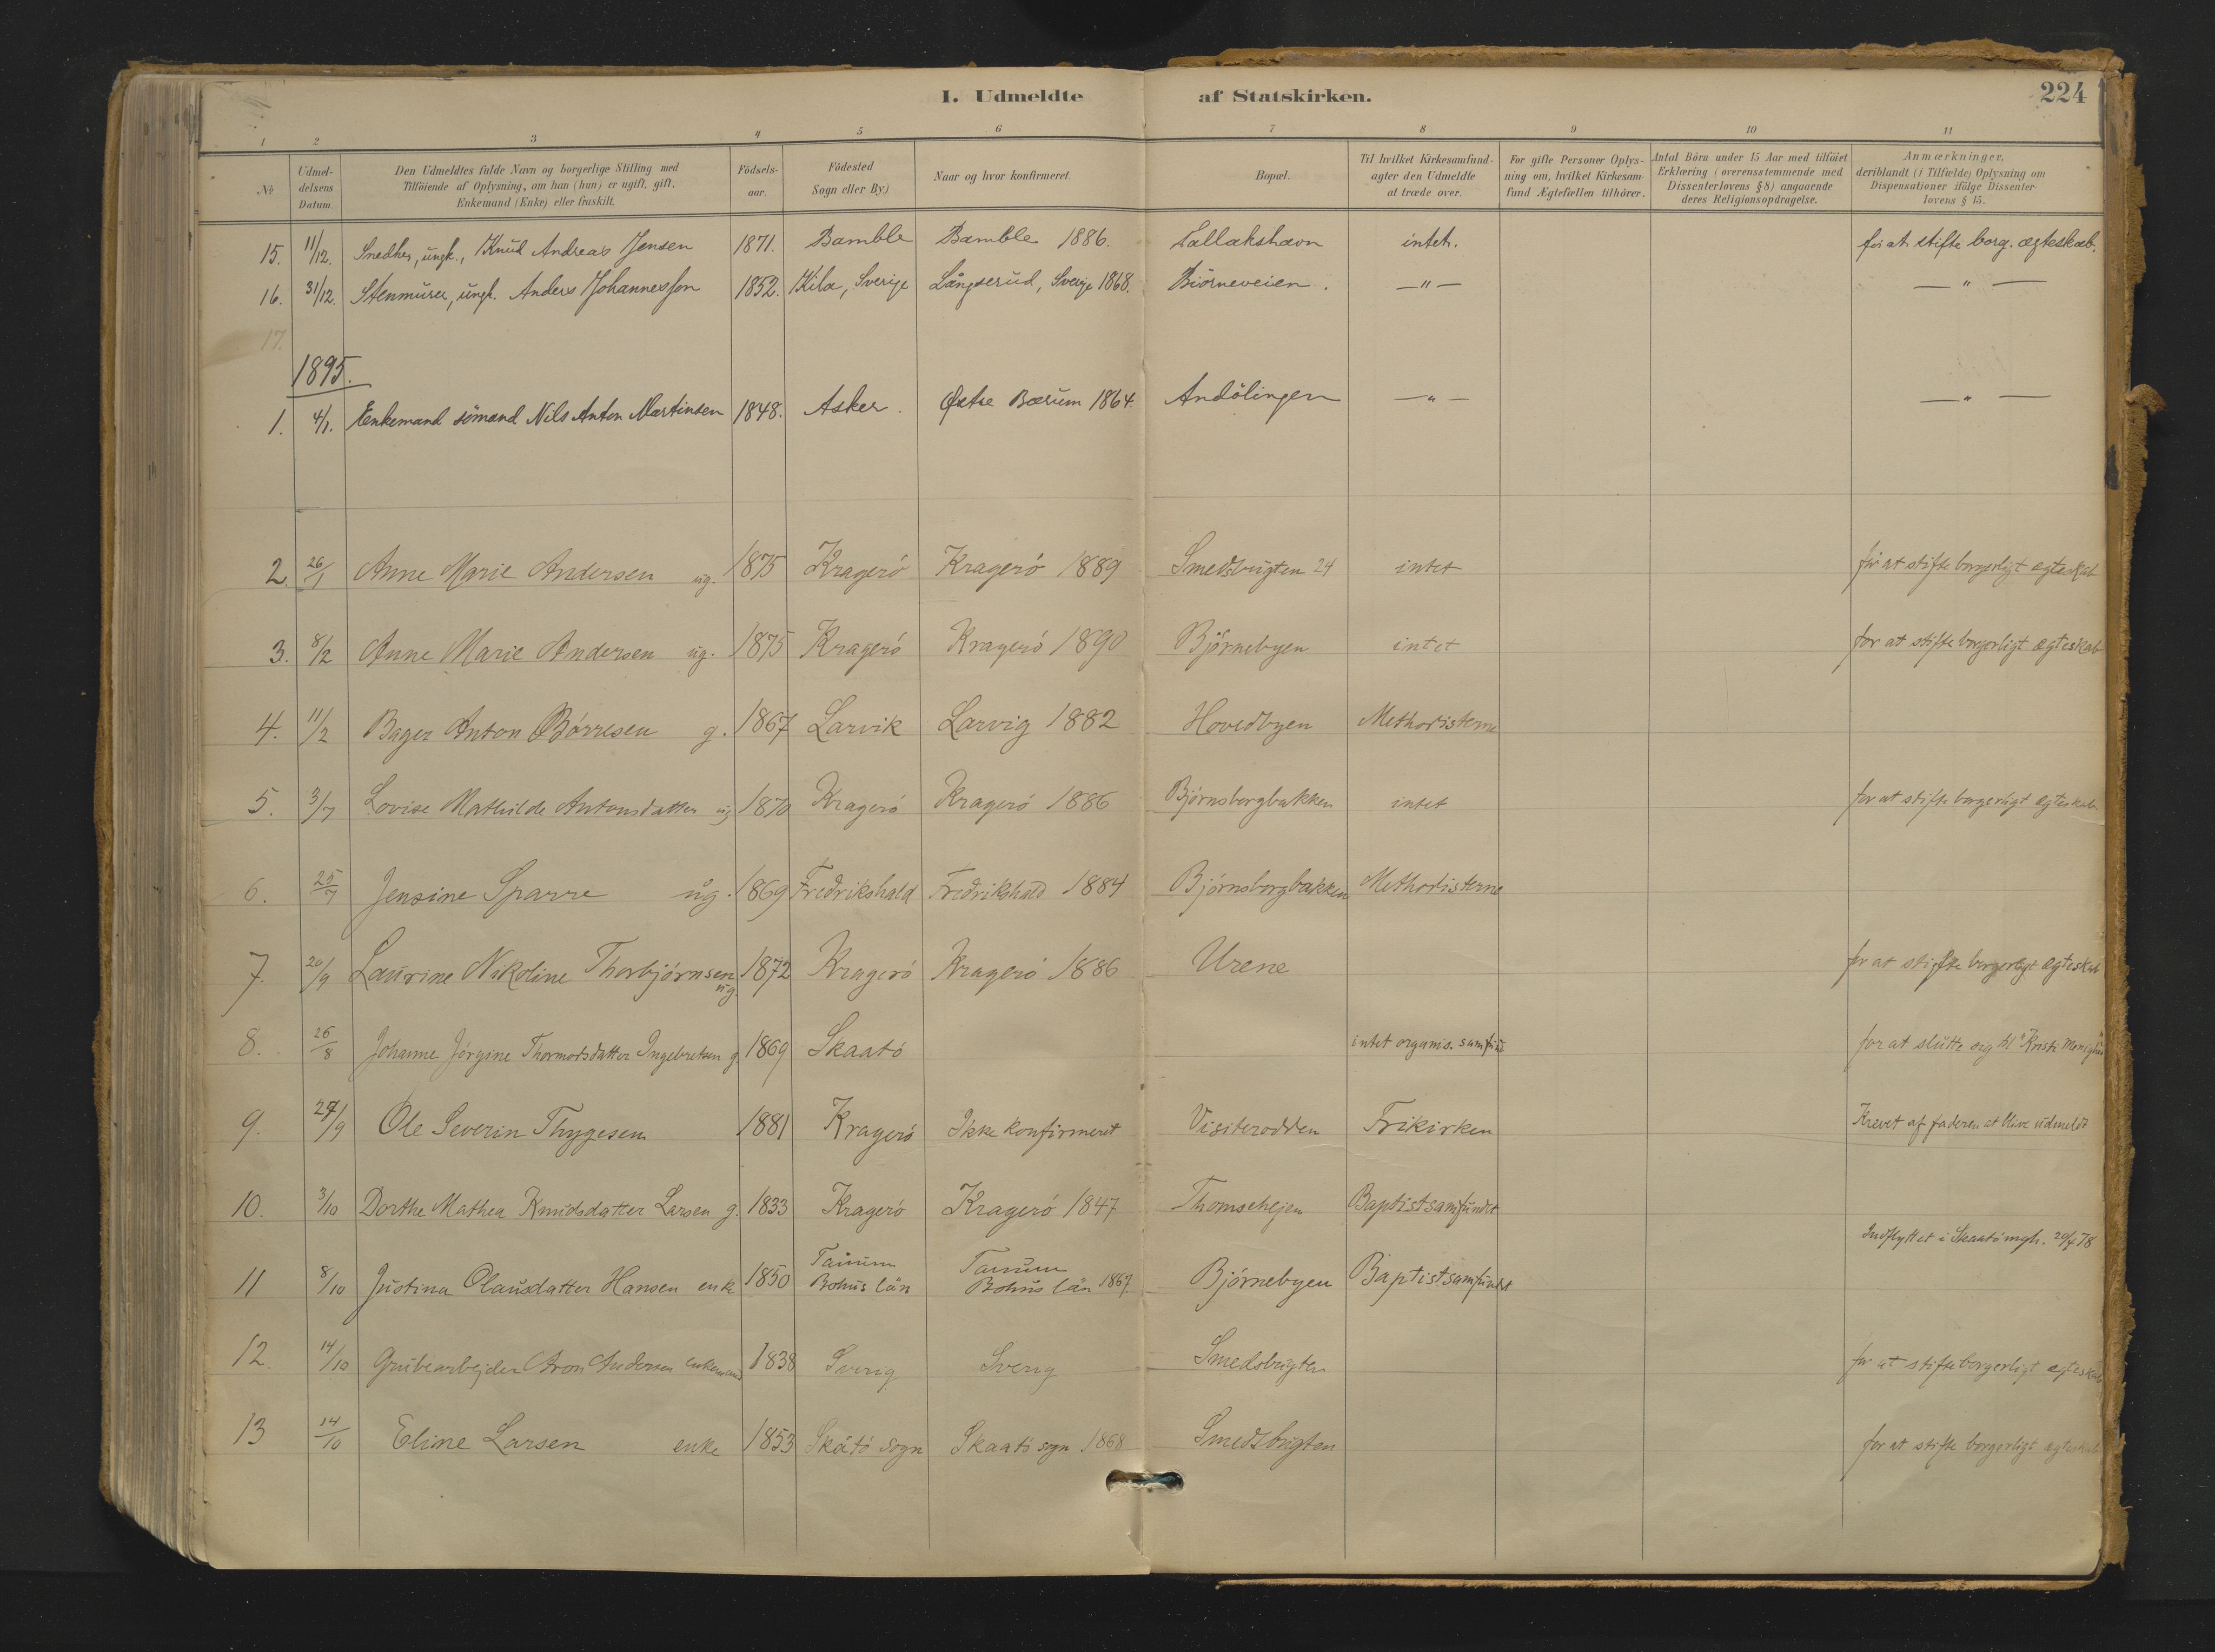 1. Udmeldte af Statskirken. 224
1 2 3 4 5 6 7 8 9 10 11
No Udmeldelsens Datum. Den Udmeldtes fulde Navn og borgerlige Stilling med Tilföiende af Oplysning, om han (hun) er ugift, gift, Enkemand (Enke) eller fraskilt. Födselsaar. Födested Sogn eller By) Naar og hvor konfirmeret. Bopæl. Til hvilket Kirkesamfund agter den Udmeldte at træde over. For gifte Personer Oplysning om, hvilket Kirkesamfund Ægtefællen tilhörer. Antal Börn under 15 Aar med tilföiet Erklæring (overensstemmende med Dissenterlovens § 8) angaaende deres Religionsopdragelse. Anmærkninger, deriblandt (i Tilfælde) Oplysning om Dispensationer ifölge Dissenterlovens § 15.
15. 11/12. Snedker, ungk., Knud Andreas Jensen 1871. Bamble Bamble 1886. Tallakshavn intet. for at stifte borg. ægteskab.
16. 31/12. Stenmurer, ungk. Anders Johannesson 1852. Kila, Sverige Långserud, Sverige 1868. Biörneveien. — " — — " —
17.
1895.
1. 4/1. Enkemand sömand Nils Anton Martinsen 1848. Asker. Østre Bærum 1864. Andölingen — " — — " —
2. 26/1 Anne Marie Andersen ug. 1875 Kragerö Kragerö 1889 Smedsbugten 24 intet for at stifte borgerligt ægteskab
3. 8/2 Anne Marie Andersen ug. 1875 Kragerö Kragerö 1890 Björnebyen intet for at stifte borgerligt ægteskab
4. 11/2 Bager Anton Börresen g. 1867 Larvik Larvig 1882 Hovedbyen Methodisterne
5. 3/7 Lovise Mathilde Antonsdatter ug 1870 Kragerö Kragerö 1886 Björnsborgbakken intet for at stifte borgerligt ægteskab
6. 25/7 Jensine Sparre ug. 1869 Fredrikshald Fredrikshald 1884 Björnsborgbakken Methodisterne
7. 20/9 Laurine Nikoline Thorbjörnsen ug. 1872 Kragerö Kragerö 1886 Urene for at stifte borgerligt ægteskab
8. 26/8 Johanne Jörgine Thormodsdatter Ingebretsen g 1869 Skaatö intet organis. samfund for at slutte sig til "Kristi Menighed"
9. 27/9 Ole Severin Thygesen 1881 Kragerö Ikke konfirmeret Visiterodden Frikirken Krevet af faderen at blive udmeldt
10. 3/10 Dorthe Mathea Knudsdatter Larsen g. 1833 Kragerö Kragerö 1847 Thomsehejen Baptistsamfundet
Indflyttet i Skaatö mgh. 20/4 78
11 8/10 Justina Olausdatter Hansen enke 1850 Tanum Bohus län Tanum Bohus län 1867. Björnebyen Baptistsamfundet
12. 14/10 Grubearbejder Aron Andersen enkemand 1838 Sverig Sverig Smedsbugten for at stifte borgerligt ægteskab
13 14/10 Eline Larsen enke 1853 Skåtö sogn Skaatö sogn 1868 Smedsbugten for at stifte borgerligt ægteskab